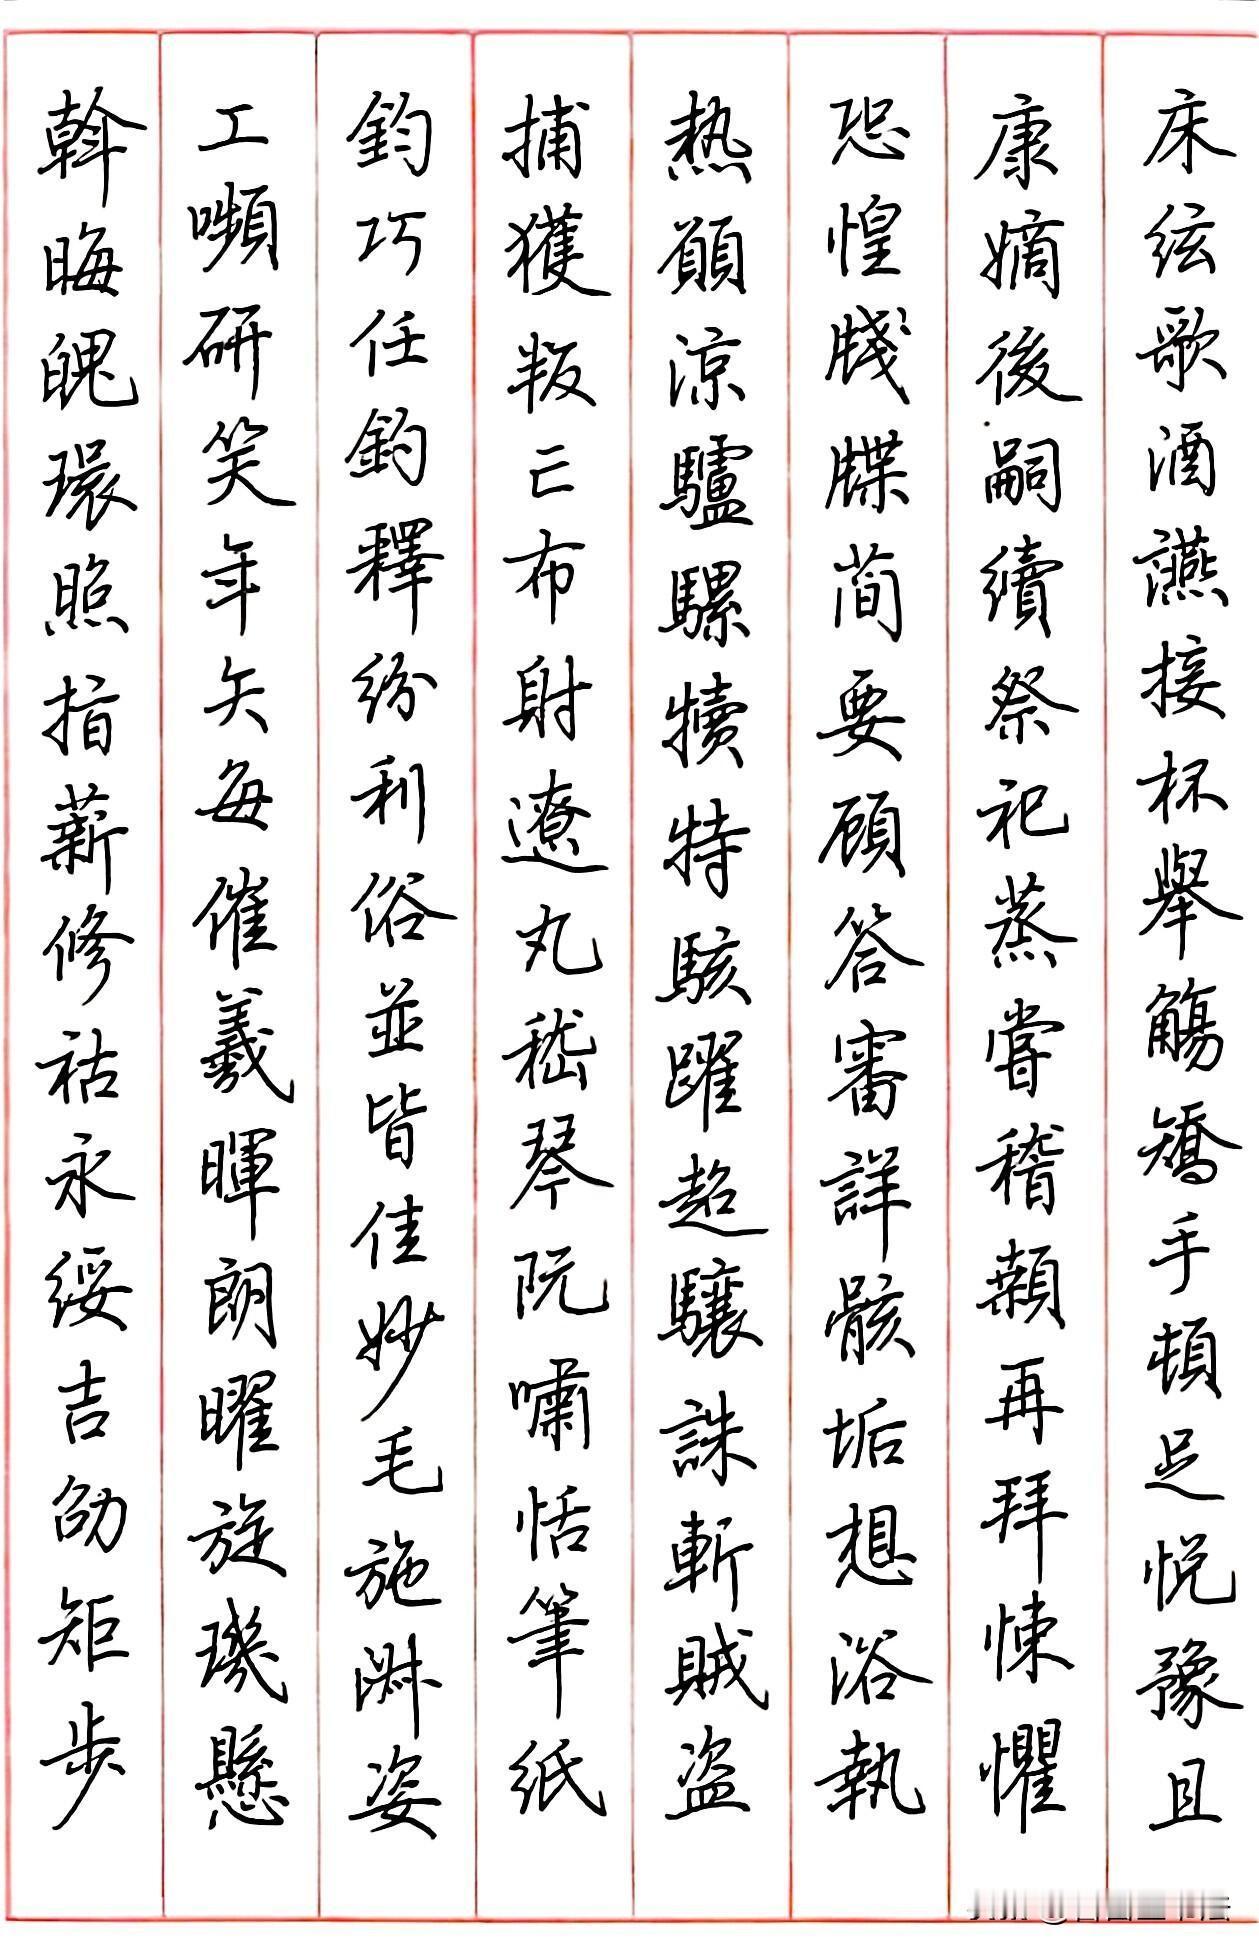 床絃歌酒讌接杯舉觴矯手頓足悅豫且
康嫡後嗣續祭祀蒸嘗稽顙再拜悚懼
恐惶牋牒簡要顾答審詳骸垢想浴執
热願涼驢騾犢特駭躍超驤誅斬賊盗
捕獲叛亡布射遼丸嵇琴阮嘯恬筆紙
鈞巧任釣釋紛利俗並皆佳妙毛施淑姿
工嚬研笑年矢每催羲暉朗曜旋璣懸
斡晦魄環照指薪修祜永綏吉劭矩步